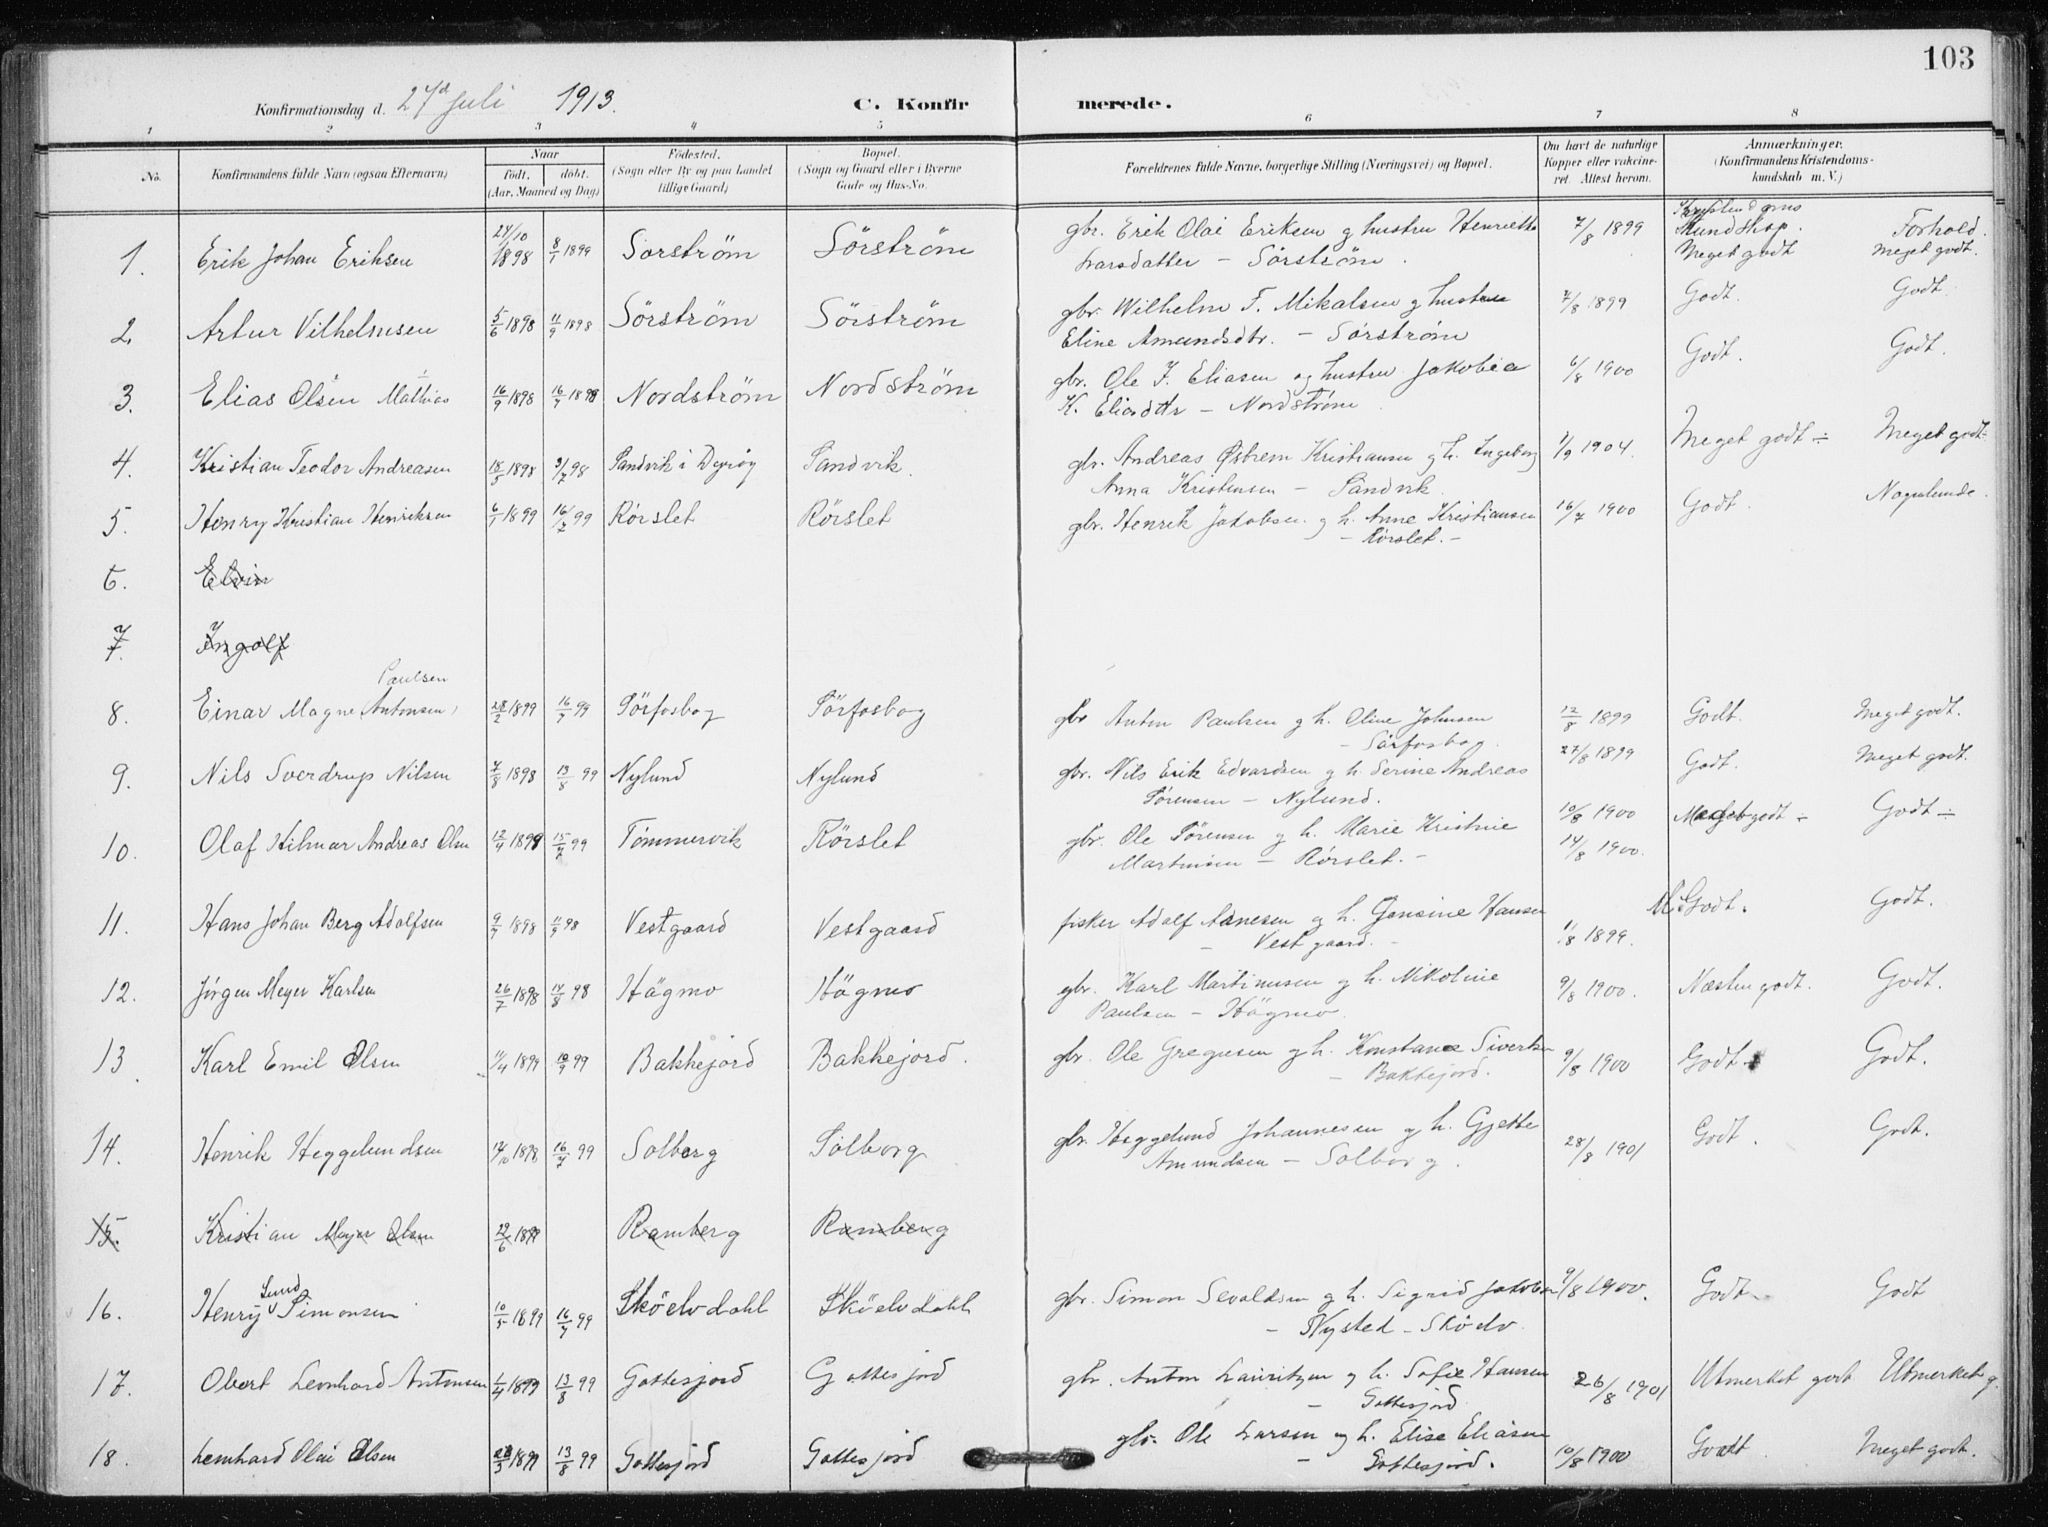 103
Konfirmationsdag d. 27d juli 1913. C. Konfirmerede.
1 2 3 4 5 6 7 8
No. Konfirmandens fulde Navn (ogsaa Efternavn) Naar født, døbt. (Aar, Maaned og Dag) Fødested. (Sogn eller By og paa Landet tillige Gaard) Bopæl. (Sogn og Gaard eller i Byerne Gade og Hus-No. Forældrenes fulde Navne, borgerlige Stilling (Næringsvei) og Bopæl. Om havt de naturlige Kopper eller vakcineret. Attest herom. Anmærkninger. (Konfirmandens Kristendomskundskab m. V.)
Kristendoms Kundskap. Forhold.
1. Erik Johan Eriksen 24/10 1898 8/1 1899 Sørstrøm Sörström gbr. Erik Olai Eriksen g hustru Henriette 7/8 1899 Meget godt Meget godt.
Larsdatter – Sörström.
2. Artur Vilhelmsen 5/6 1898 11/9 1898 Sörström Sörström gbr. Wilhelm F. Mikalsen g hustru 7/8 1899 Godt. Godt.
Eline Amundsdtr. – Sórström
3. Elias Olsen Mathias 16/9 1898 16/7 1898 Nordström Nordström gbr. Ole J. Eliasen og hustru Jakobia 6/8 1900 Godt. Godt.
K. Eliasdttr – Nordstrøm
4. Kristian Teodor Andreasen 18/5 1898 3/7 98 Sandvik i Dyrøy Sandvik. gbr. Andreas Østrem Kristiansen g h. Ingeborg 1/9 1904. Meget godt ÷ Meget godt ÷
Anna Kristensen – Sandvik
5. Henry Kristian Henriksen 6/1 1899 16/7 99 Rörslet Rörslet gbr. Henrik Jakobsen g h. Anne Kristiansen 16/7 1900 Godt Nogenlunde.
– Rörslet. –
6. Elvin
7. Ingolf
Paulsen
8. Einar Magne (Antonsen) 28/2 1899 16/7 99 Sörfosbog Sörfosbog gbr Anton Paulsen g h. Oline Johnsen 12/8 1899 Godt. Meget godt.
– Sörfosbog.
9. Nils Sverdrup Nilsen 7/8 1898 13/8 99 Nylund Nylund gbr. Nils Erik Edvardsen g h. Serine Andreas 27/8 1899 Godt. Meget godt.
Sörensen – Nylund.
10. Olaf Hilmar Andreas Olsen 12/4 1899 15/7 99 Tömmervik Rörslet gbr. Ole Sörensen g h. Marie Kristine 10/8 1900 Meget godt ÷ Godt ÷
Martinsen – Rörslet. – 14/8 1900.
11. Hans Johan Berg Adolfsen 9/7 1898 11/9 98 Vestgaard Vestgaard fisker Adolf Arnesen g h. Jensine Hansen 11/8 1899. M. Godt. Godt.
– Vestgaard. –
12. Jörgen Meyer Karlsen 26/7 1898 14/8 98 Högmo Högmo gbr. Karl Martinusen g h. Nikoline 9/8 1900. Næsten godt. Godt.
Paulsen – Högmo.
13 Karl Emil Olsen 11/4 1899 10/9 99 Bakkejord Bakkejord. gbr. Ole Gregusen g h. Konstanse Sivertsen 9/8 1900 Godt. Godt.
– Bakkejord.
14. Henrik Heggelundsen 14/10 1898 16/7 99 Solberg Solborg gbr. Heggelund Johannesen g h. Gjette 28/8 1901 Godt. Godt.
Amundsen – Solborg.
15. Kristian Mejer Olsen 29/6 1899 Ramberg Ramberg
16. Henry Lund Simonsen 10/5 1899 16/7 99 Sköelvdahl Sköelvdahl gbr. Simon Sevaldsen g h. Sigrid Jakobsen 9/8 1900. Godt Godt
– Nysted – Sköelv.
17. Obert Leonhard Antonsen 1/4 1899 13/8 99 Gottesjord Gottesjord gbr. Anton Lauritzen g h. Sofie Hansen 26/8 1901 Utmerket godt Utmerket g.
– Gottesjord
18. Lenhard Olai Olsen 28/3 1899 13/8 99 Gottesjord Gottesjord gbr. Ole Larsen og h. Elise Eliasen 10/8 1900 Godt Meget godt.
– Gottesjord.